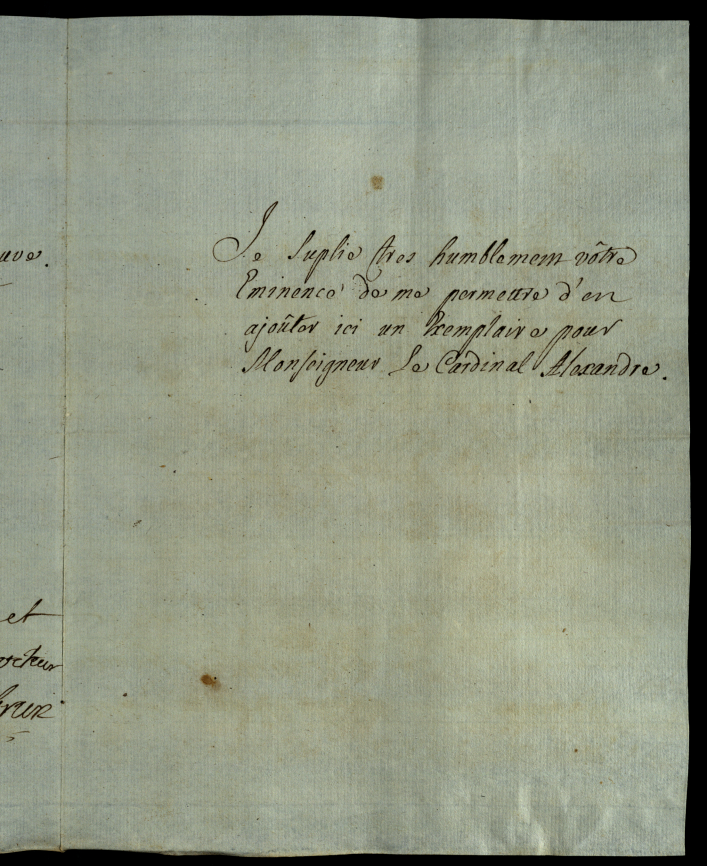 Je suplie tres humblement vôtre
Eminence de me permettre d'en
ajoûter ici un Exemplaire pour
Monseigneur Le Cardinal Alexandre.
et